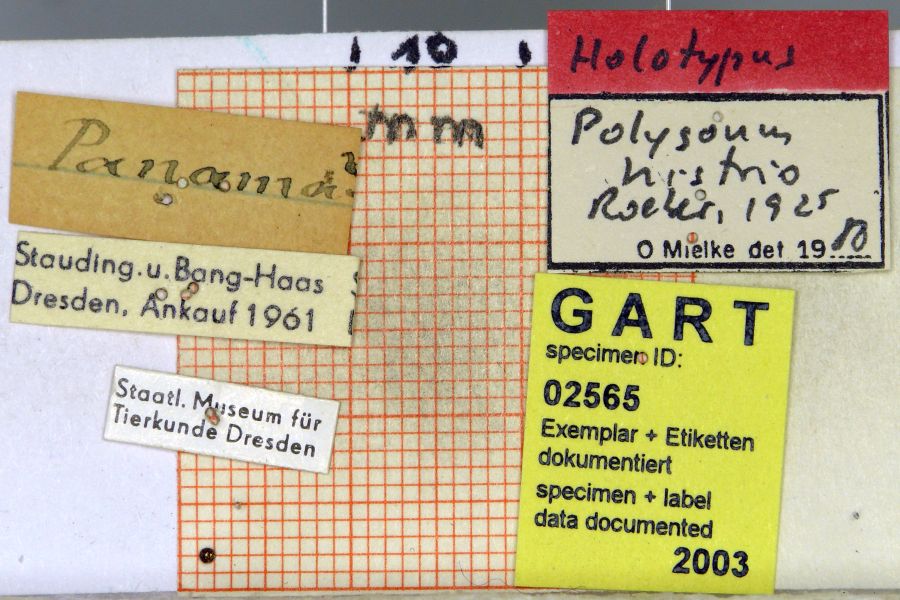 10
mm
Panamá
Stauding. u. Bang-Haas
Dresden, Ankauf 1961
Staatl. Museum für
Tierkunde Dresden
Holotypus
Polygonum
histrio
Roeber, 1925
O Mielke det 19
GART
specimen ID:
02565
Exemplar + Etiketten
dokumentiert
specimen + label
data documented
2003